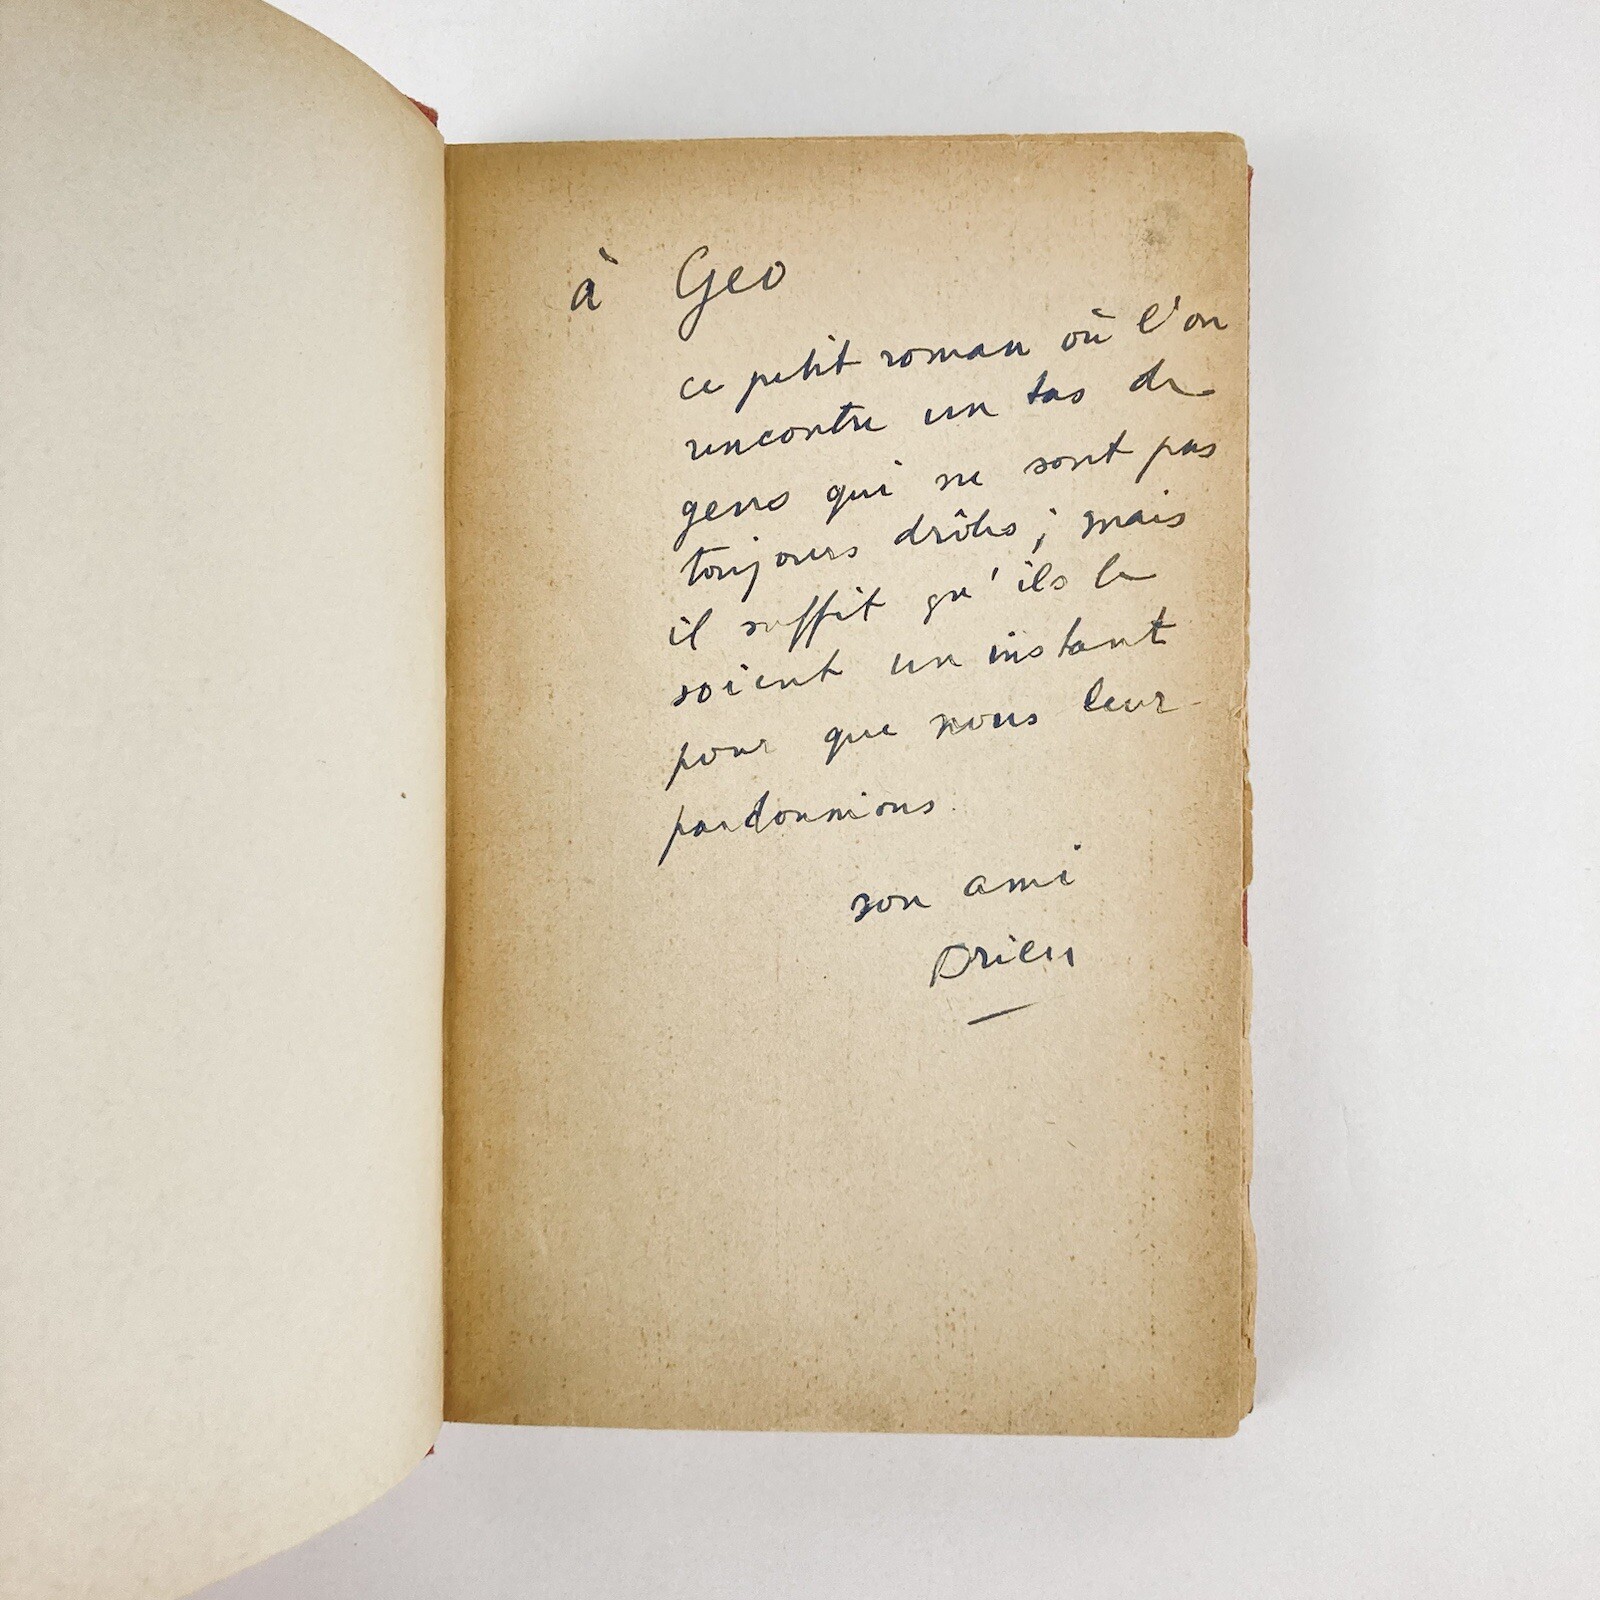 à Geo
ce petit roman où l'on
rencontre un tas de
gens qui ne sont pas
toujours drôles ; mais
il suffit qu'ils le
soient un instant
pour que nous leur
pardonnions.
son ami
Drieu